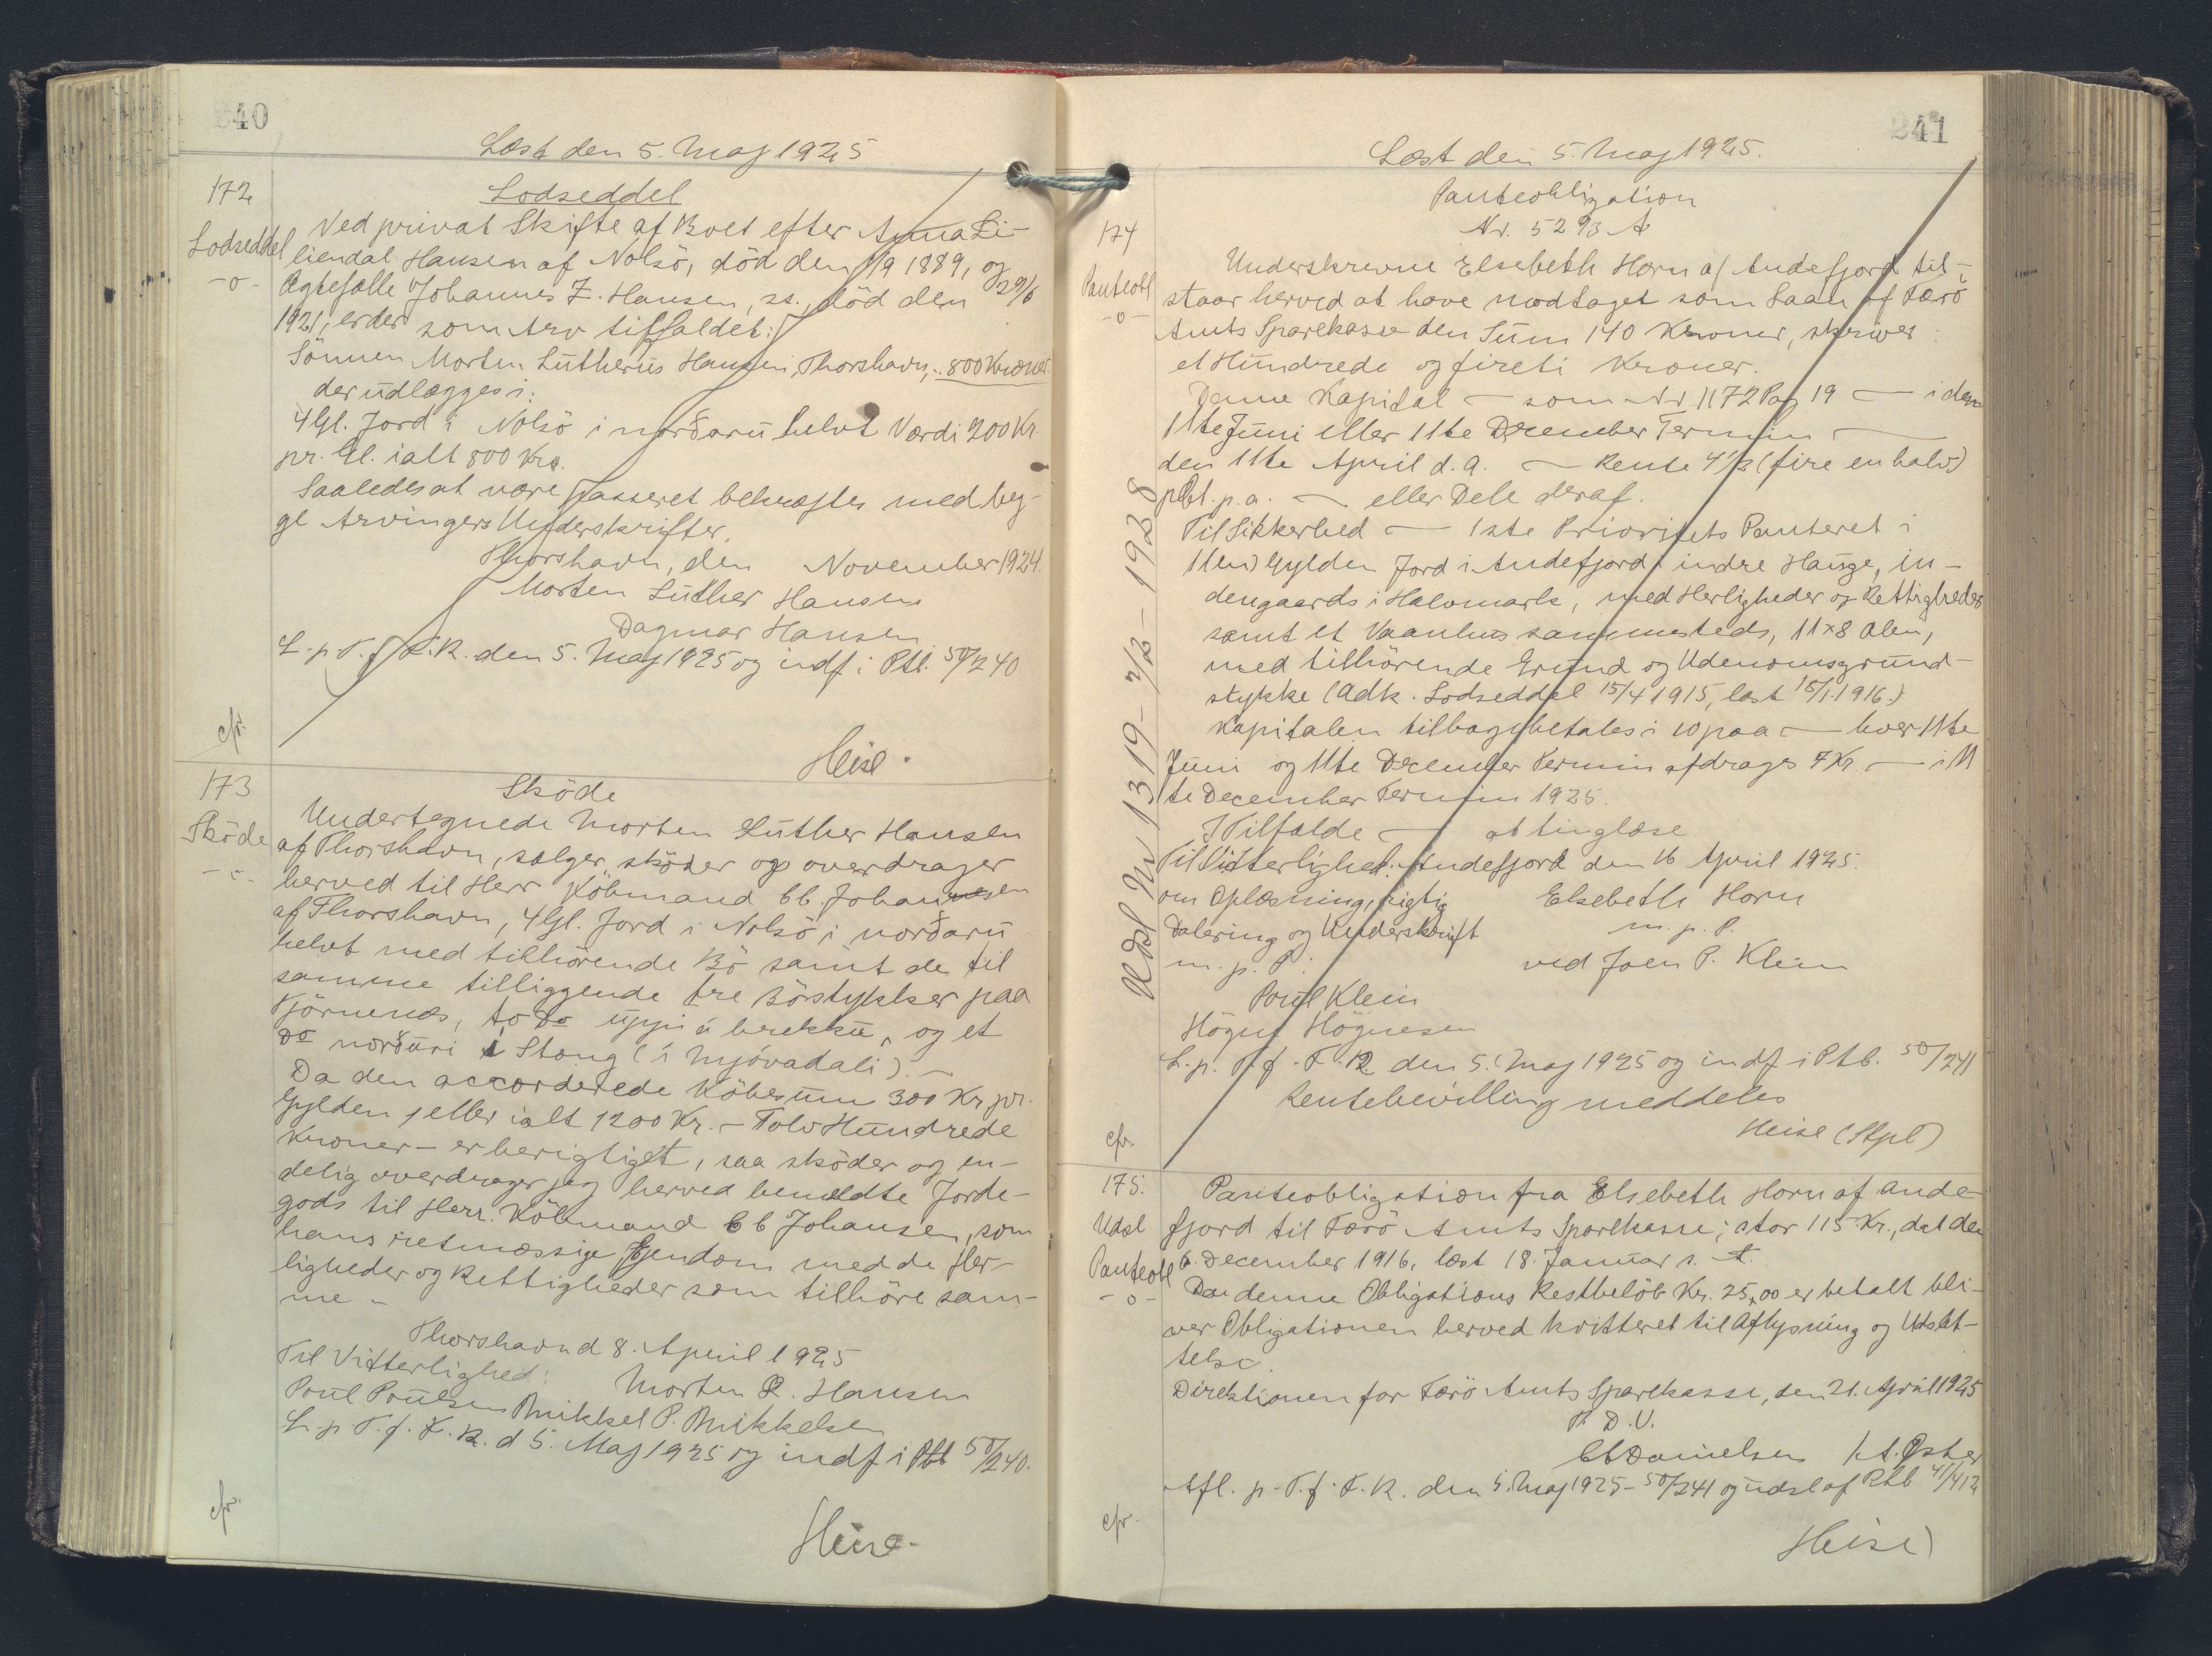 240
Læst den 5. Maj 1925
172
Lodseddel
-o-
Lodseddel
Ved privat Skifte af Boet efter Anna Li-
liendal Hansen af Nolsö, död den 1/9 1889, og
Ægtefælle Johannes Z. Hansen, ss., död den 29/6
1921, er der som Arv tilfaldet:
Sönnen Morten Lutherus Hansen, Thorshavn, 800 Kroner
der udlægges i:
4 Gl. Jord i Nolsö i norðaru helvt Værdi 200 Kr.
pr. Gl. ialt 800 Kr.
Saaledes at være passeret bekræftes med beg-
ge Arvingers Underskrifter.
Thorshavn, den November 1924.
Morten Luther Hansen
Dagmar Hansen
L. p. T. f. F. R. den 5. Maj 1925 og indf i Ptb. 50/240
cfr.
Heise.
173
Sköde
-o-
Sköde
Undertegnede Morten Luther Hansen
af Thorshavn, sælger, sköder og overdrager
herved til Herr Köbmand C C. Johannesen
af Thorshavn, 4 Gl. Jord i Nolsö i norðaru
helvt med tilhörende Bö samt de til
samme tilliggende tre Böstykker paa
Kjörnenes, to Do uppi á brekku, og et
Do norðuri i Stong (i Mjóvadali). -
Da den accorderede Köbesum 300 Kr pr.
Gylden, eller ialt 1200 Kr. - Tolv Hundrede
Kroner - er berigtiget, saa sköder og en-
delig overdrager jeg herved bemeldte Jorde-
gods til Herr. Köbmand C C Johansen, som
hans retmæssige Ejendom med de Her-
ligheder og Rettigheder som tilhöre sam-
me -
Thorshavn d 8. April 1925
Til Vitterlighed: Morten L. Hansen
Poul Poulsen Mikkel P. Mikkelsen
L. p T. f. F. R. d 5. Maj 1925 og indf i Ptb 50/240.
cfr.
Heise.
241
Læst den 5. Maj 1925.
Panteobligation
Nr. 5293 A
174
Panteobl
-o-
Underskrevne Elsebeth Horn af Andefjord til-
staar herved at have modtaget som Laan af Færö
Amts Sparekasse den Sum 140 Kroner, skriver
et Hundrede og fireti Kroner.
Denne Kapital — som Nr 1172 Pag 19 — i den
11te Juni eller 11te December Termin —
den 11te April d. A. — Rente 4 1/2 (fire en halv)
pCt. p. a. — eller Dele deraf.
Til Sikkerhed — 1ste Prioritets Panteret i
1 (en) Gylden Jord i Andefjord i indre Hauge, in-
dengaards i Halvmark, med Herligheder og Rettigheder
samt et Vaanhus sammesteds, 11 x 8 Alen,
med tilhörende Grund og Udenomsgrund-
stykke (Adk. Lodseddel 15/4 1915, læst 15/1 1916)
Kapitalen tilbagebetales i 10 paa — hver 11te
Juni og 11te December Termin afdrages 7 Kr. — i 11
te December Termin 1925.
I Tilfælde — at tinglæse
Til Vitterlighed: Andefjord den 16 April 1925.
om Oplæsning, rigtig Elsebeth Horn
Datering og Underskrift m. p. P.
m. p. P: ved Joen P. Klein
Poul Klein
Högni Högnesen
L. p. T. f. F. R. den 5. Maj 1925 og indf i Ptb. 50/241
Rentebevilling meddeles
Heise (Stpl)
cfr.
Udsl Nr 1319 - 7/2 - 1938
175.
Udsl
Panteobl
-o-
Panteobligation fra Elsebeth Horn af Ande-
fjord til Færö Amts Sparekasse, stor 115 Kr., dat den
6. December 1916, læst 18. Januar n. A.
Da denne Obligations Restbelöb Kr. 25,00 er betalt bli-
ver Obligationen herved kvitteret til Aflysning og Udslet-
telse.
Direktionen for Færö Amts Sparekasse, den 21. April 1925
P. D. V.
C C Danielsen / A. Öster
Afl. p. T. f. F. R. den 5. Maj 1925 - 50/241 og udsl af Ptb 41/412
cfr.
Heise